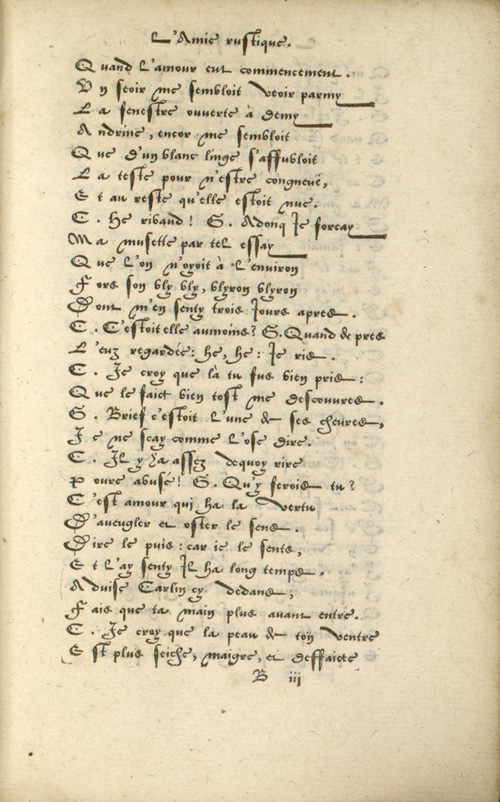 L'Amie rustique.
Quand l'amour eut commencement.
Un seoir me sembloit veoir parmy
La fenestre ouverte à demy
Andrine, encor me sembloit
Que d'un blanc linge s'affubloit
La teste pour n'estre congneuë,
Et au reste qu'elle estoit nue.
C. He ribaud! G. Adonq Je forcay
Ma musette par tel essay
Que l'on n'oyoit à l'environ
Fors son vly vly, vlyron vlyron
Dont m'en senty trois Jours apres.
C. C'estoit elle aumoins? G. Quand de pres
L'euz regardée: he, he: Je ris.
C. Je croy que là tu fus bien pris:
Que le faict bien tost me descouvres.
G. Brief c'estoit l'une de ses cheures,
Je ne scay comme l'ose dire.
C. Il y ha assez dequoy rire
Povre abusé! G. Qu'y ferois tu?
C'est amour qui ha la vertu
D'aveugler et oster le sens.
Dire le puis: car ie le sents,
Et l'ay senty Il ha long temps.
Advise Carlin cy dedans,
Fais que ta main plus avant entre.
C. Je croy que la peau de ton ventre
Est plus seiche, maigre, et deffaicte
B iii